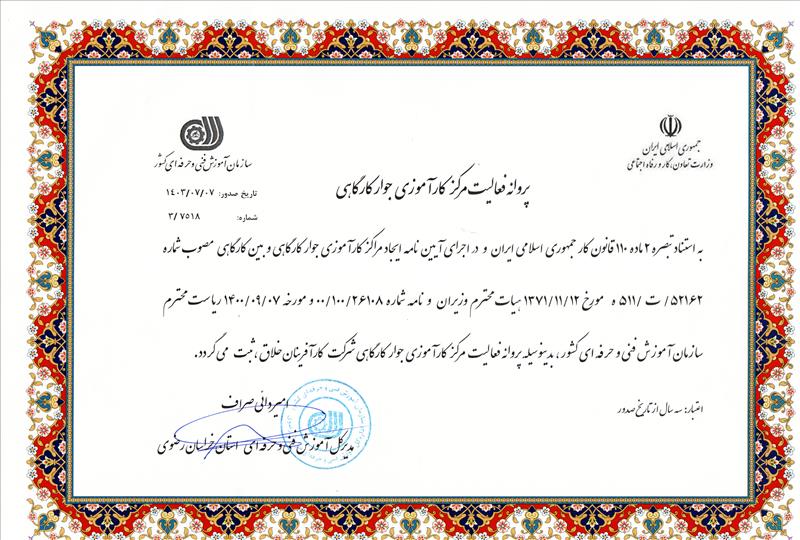 جمهوری اسلامی ایران
وزارت تعاون، کار و رفاه اجتماعی
سازمان آموزش فنی و حرفه ای کشور
تاریخ صدور: ۱۴۰۳/۰۷/۰۷
شماره: ۳/۷۵۱۸
پروانه فعالیت مرکز کارآموزی جوار کارگاهی
به استناد تبصره ۲ ماده ۱۱۰ قانون کار جمهوری اسلامی ایران و در اجرای آیین نامه ایجاد مراکز کارآموزی جوار کارگاهی و بین کارگاهی مصوب شماره
۵۲۱۶۲/ ت /۵۱۱ ه مورخ ۱۳۷۱/۱۱/۱۲ هیات محترم وزیران و نامه شماره ۰۰/۱۰۰/۲۶۱۰۸ و مورخه ۱۴۰۰/۰۹/۰۷ ریاست محترم
سازمان آموزش فنی و حرفه ای کشور، بدینوسیله پروانه فعالیت مرکز کارآموزی جوار کارگاهی شرکت کارآفرینان خلاق، ثبت می گردد.
اعتبار: سه سال از تاریخ صدور
امیر وائی صراف
مدیرکل آموزش فنی و حرفه ای استان خراسان رضوی